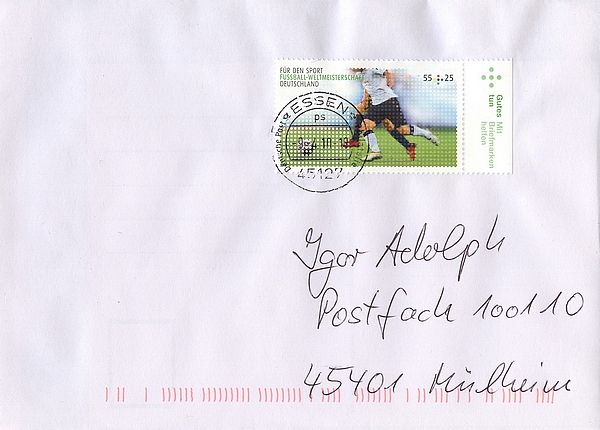 FÜR DEN SPORT
FUSSBALL-WELTMEISTERSCHAFT
DEUTSCHLAND
55+25
Gutes Mit
tun Briefmarken
helfen
ESSEN
ps
45127
Deutsche Post
Igor Adolph
Postfach 100110
45401 Mülheim